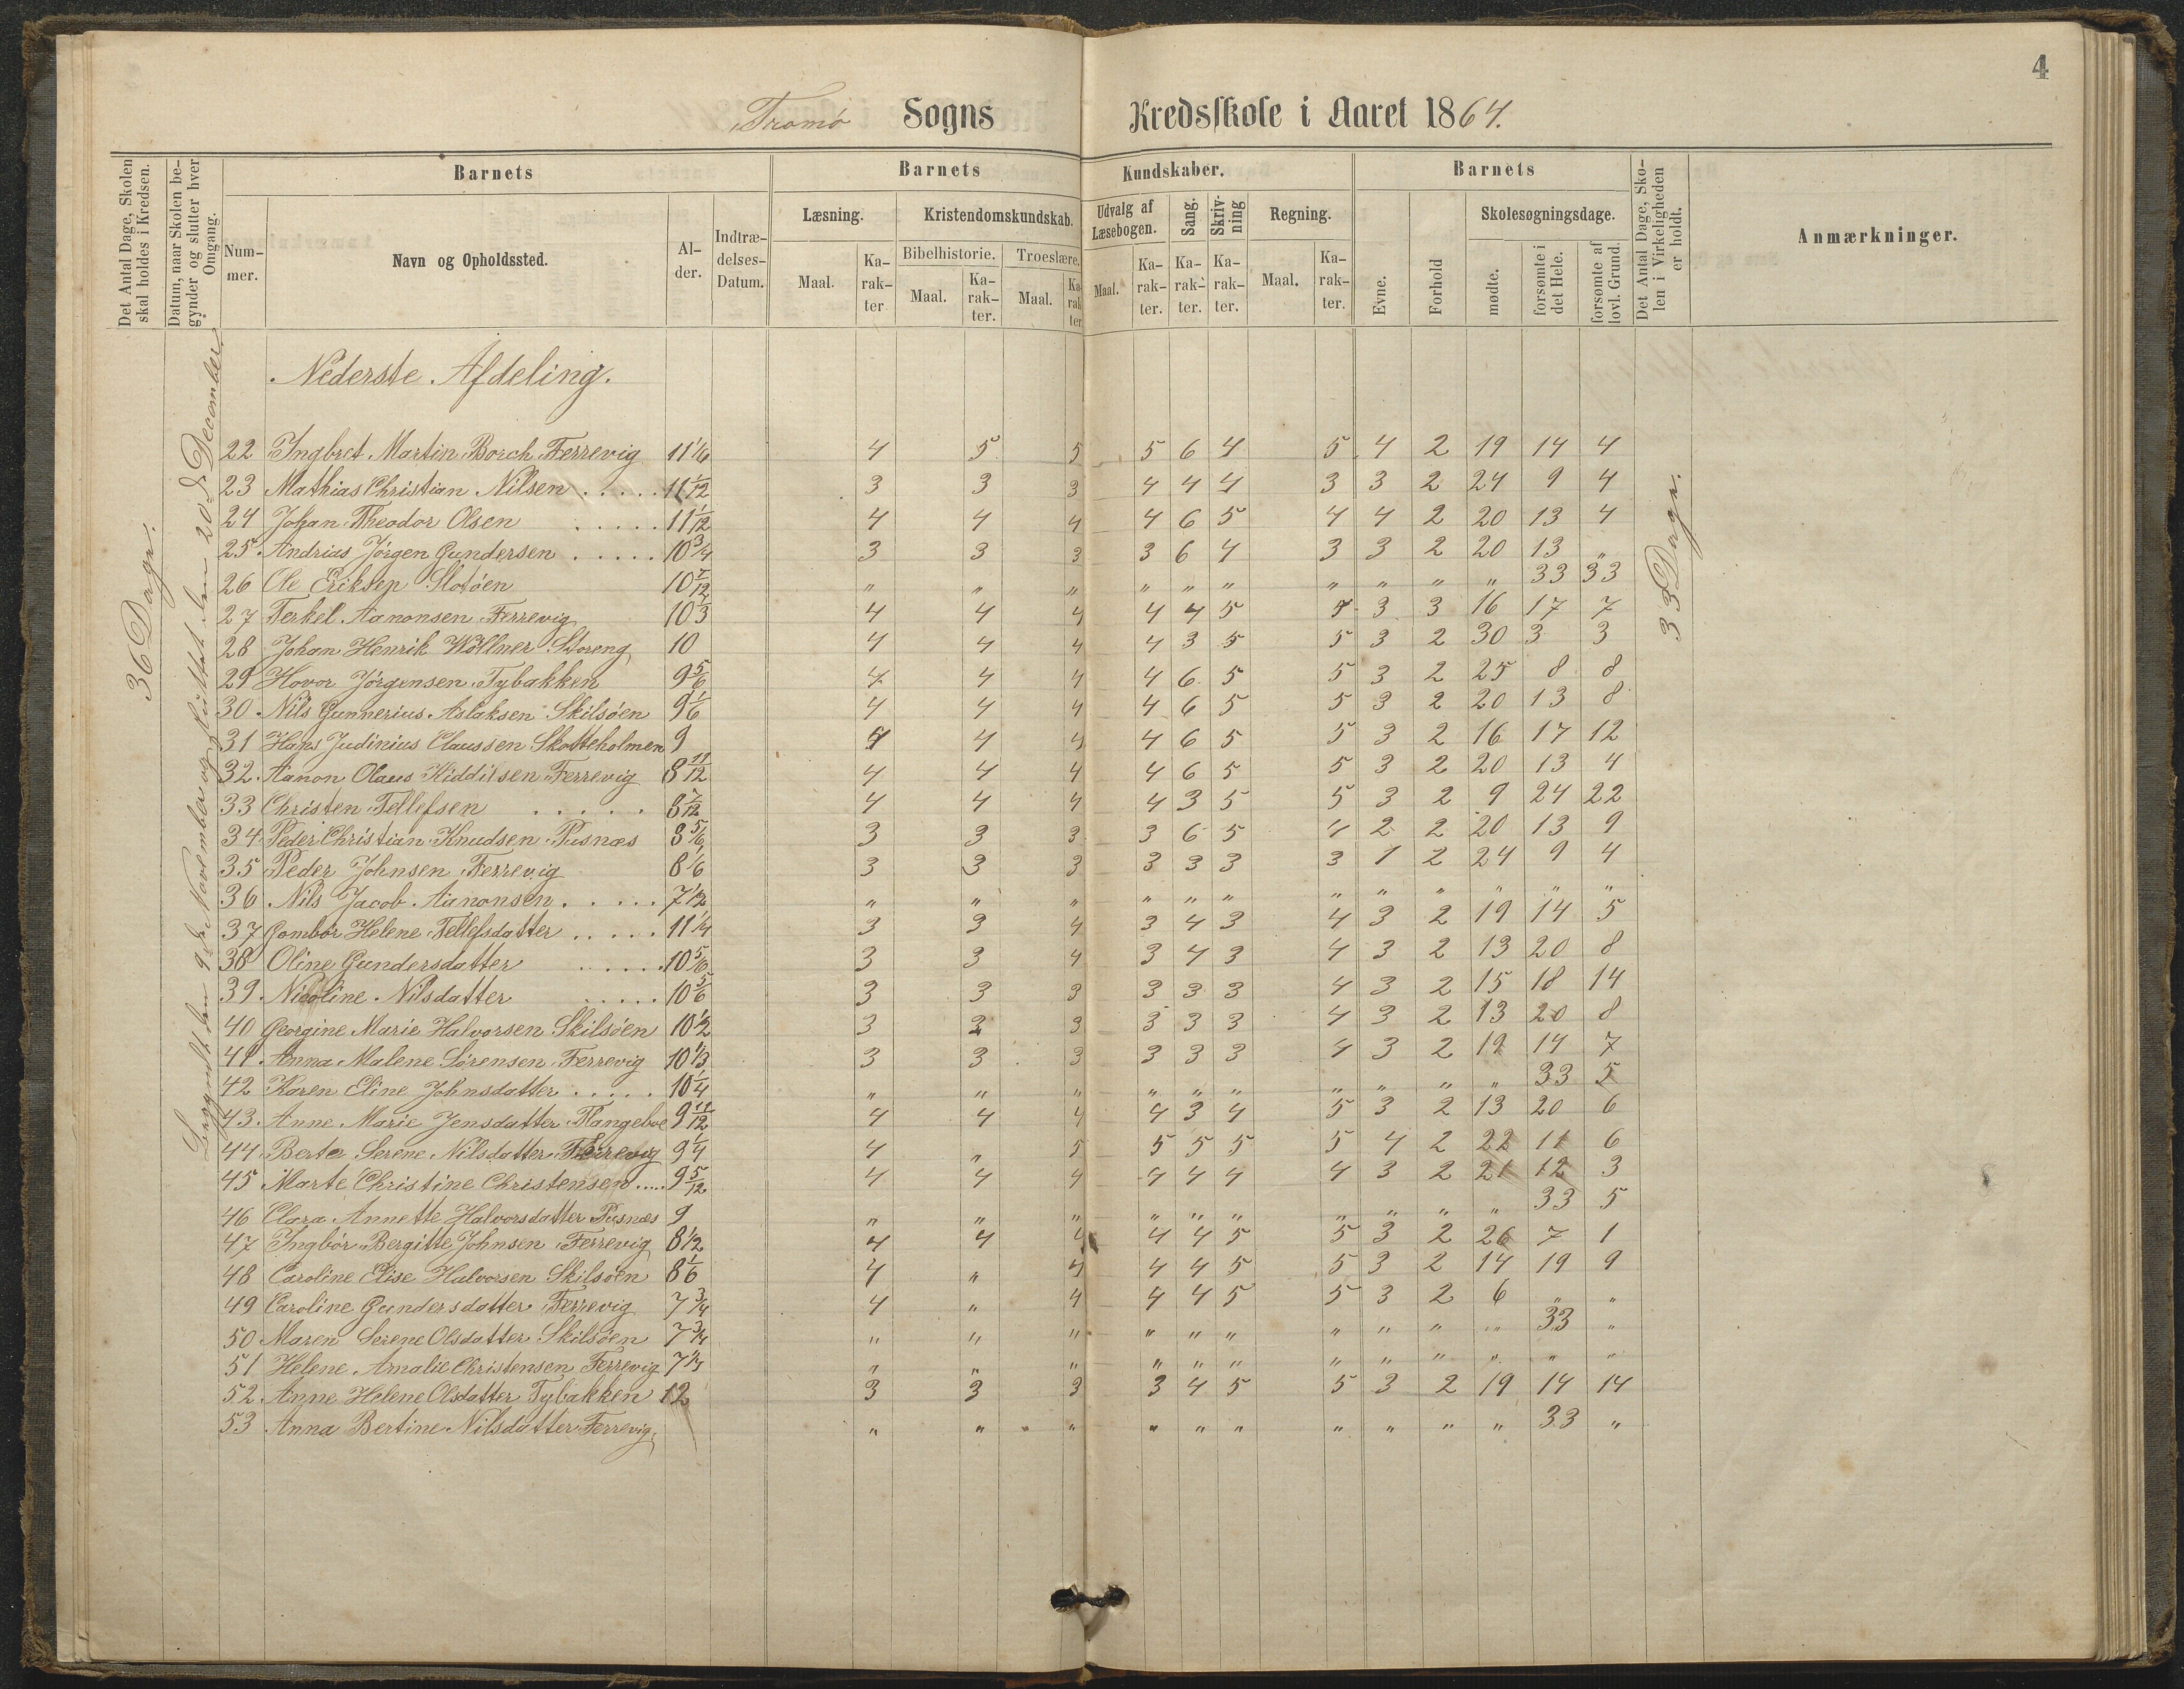 4
Tromö Sogns Kredsskole i Aaret 1864.
Det Antal Dage, Skolen skal holdes i Kredsen.
Datum, naar Skolen begynder og slutter hver Omgang.
Barnets
Barnets Kundskaber.
Barnets
Det Antal Dage, Skolen i Virkeligheden er holdt.
Anmærkninger.
Nummer.
Navn og Opholdssted.
Alder.
Indtrædelses-Datum.
Læsning.
Kristendomskundskab.
Udvalg af Læsebogen.
Sang.
Skrivning
Regning.
Evne.
Forhold
Skolesøgningsdage.
Bibelhistorie.
Troeslære.
Maal.
Karakter
Maal.
Karakter.
Maal.
Karakter
Maal.
Karakter.
Karakter.
Karakter.
Maal.
Karakter.
mødte.
forsømte i det Hele.
forsømte af lovl. Grund.
36 Dage.
Begyndt den 9de November og sluttet den 20de December.
33 Dage.
Nederste Afdeling.
22 Ingbret Martin Borch Færrevig 11 1/6 4 5 5 5 6 4 5 4 2 19 14 4
23 Mathias Christian Nilsen . . . . . 11 1/12 3 3 3 4 4 4 3 3 2 24 9 4
24 Johan Theodor Olsen . . . . . 11 1/12 4 4 4 4 6 5 4 4 2 20 13 4
25 Andrias Jörgen Gundersen . . . . . 10 3/4 3 3 3 3 6 4 3 3 2 20 13 „
26 Ole Eriksen Slotöen 10 7/12 „ „ „ „ „ „ „ „ „ „ 33 33
27 Terkel Aanonsen Færrevig 10 3 4 4 4 4 4 5 5 3 3 16 17 7
28 Johan Henrik Wöllner Storeng 10 4 4 4 4 3 5 5 3 2 30 3 3
29 Hovor Jörgensen Tybakken 9 5/6 4 4 4 4 6 5 5 3 2 25 8 8
30 Nils Gunnerius Aslaksen Skilsöen 9 1/6 4 4 4 4 6 5 5 3 2 20 13 8
31 Hans Judinius Claussen Skotteholmen 9 4 4 4 4 6 5 5 3 2 16 17 12
32 Aanon Olaus Kiddilsen Færrevig 8 11/12 4 4 4 4 6 5 5 3 2 20 13 4
33 Christen Tellefsen . . . . . 8 7/12 4 4 4 4 3 5 5 3 2 9 24 22
34 Peder Christian Knudsen Pusnæs 8 5/6 3 3 3 3 6 5 4 2 2 20 13 9
35 Peder Johnsen Færrevig 8 1/6 3 3 3 3 3 3 3 1 2 24 9 4
36 Nils Jacob Aanonsen . . . . . 7 1/2 „ „ „ „ „ „ „ „ „ „ „ „
37 Gombör Helene Tellefsdatter . . . . . 11 1/4 3 3 4 3 4 3 4 3 2 19 14 5
38 Oline Gundersdatter . . . . . 10 5/6 3 3 4 3 4 3 4 3 2 13 20 8
39 Nicoline Nilsdatter . . . . . 10 5/6 3 3 3 3 3 3 4 3 2 15 18 14
40 Georgine Marie Halvorsen Skilsöen 10 1/2 3 2 3 3 3 3 4 3 2 13 20 8
41 Anna Malene Sørensen Færrevig 10 1/3 3 3 3 3 3 3 4 3 2 19 14 7
42 Karen Eline Johnsdatter . . . . . 10 1/4 „ „ „ „ „ „ „ „ „ „ 33 5
43 Anne Marie Jensdatter Rangeboe 9 11/12 4 4 4 4 3 4 5 3 2 13 20 6
44 Berte Serene Nilsdatter Færrevig 9 1/4 4 „ 5 5 5 5 5 4 2 22 11 6
45 Marte Christine Christensen ..... 9 5/12 4 4 4 4 4 4 4 3 2 21 12 3
46 Clara Annette Halvorsdatter Pusnæs 9 „ „ „ „ „ „ „ „ „ „ 33 5
47 Ingbör Bergitte Johnsen Færrevig 8 1/2 4 4 4 4 4 5 5 3 2 26 7 1
48 Caroline Elise Halvorsen Skilsöen 8 1/6 4 „ 4 4 4 5 5 3 2 14 19 9
49 Caroline Gundersdatter Færrevig 7 3/4 4 „ 4 4 4 5 5 3 2 6 „ „
50 Maren Serene Olsdatter Skilsöen 7 3/4 „ „ „ „ „ „ „ „ „ „ 33 „
51 Helene Amalie Christensen Færrevig 7 1/3 „ „ „ „ „ „ „ „ „ „ „ „
52 Anne Helene Olsdatter Tybakken 12 3 3 3 3 4 5 5 3 2 19 14 14
53 Anna Bertine Nilsdatter Færrevig. „ „ „ „ „ „ „ „ „ „ 33 „